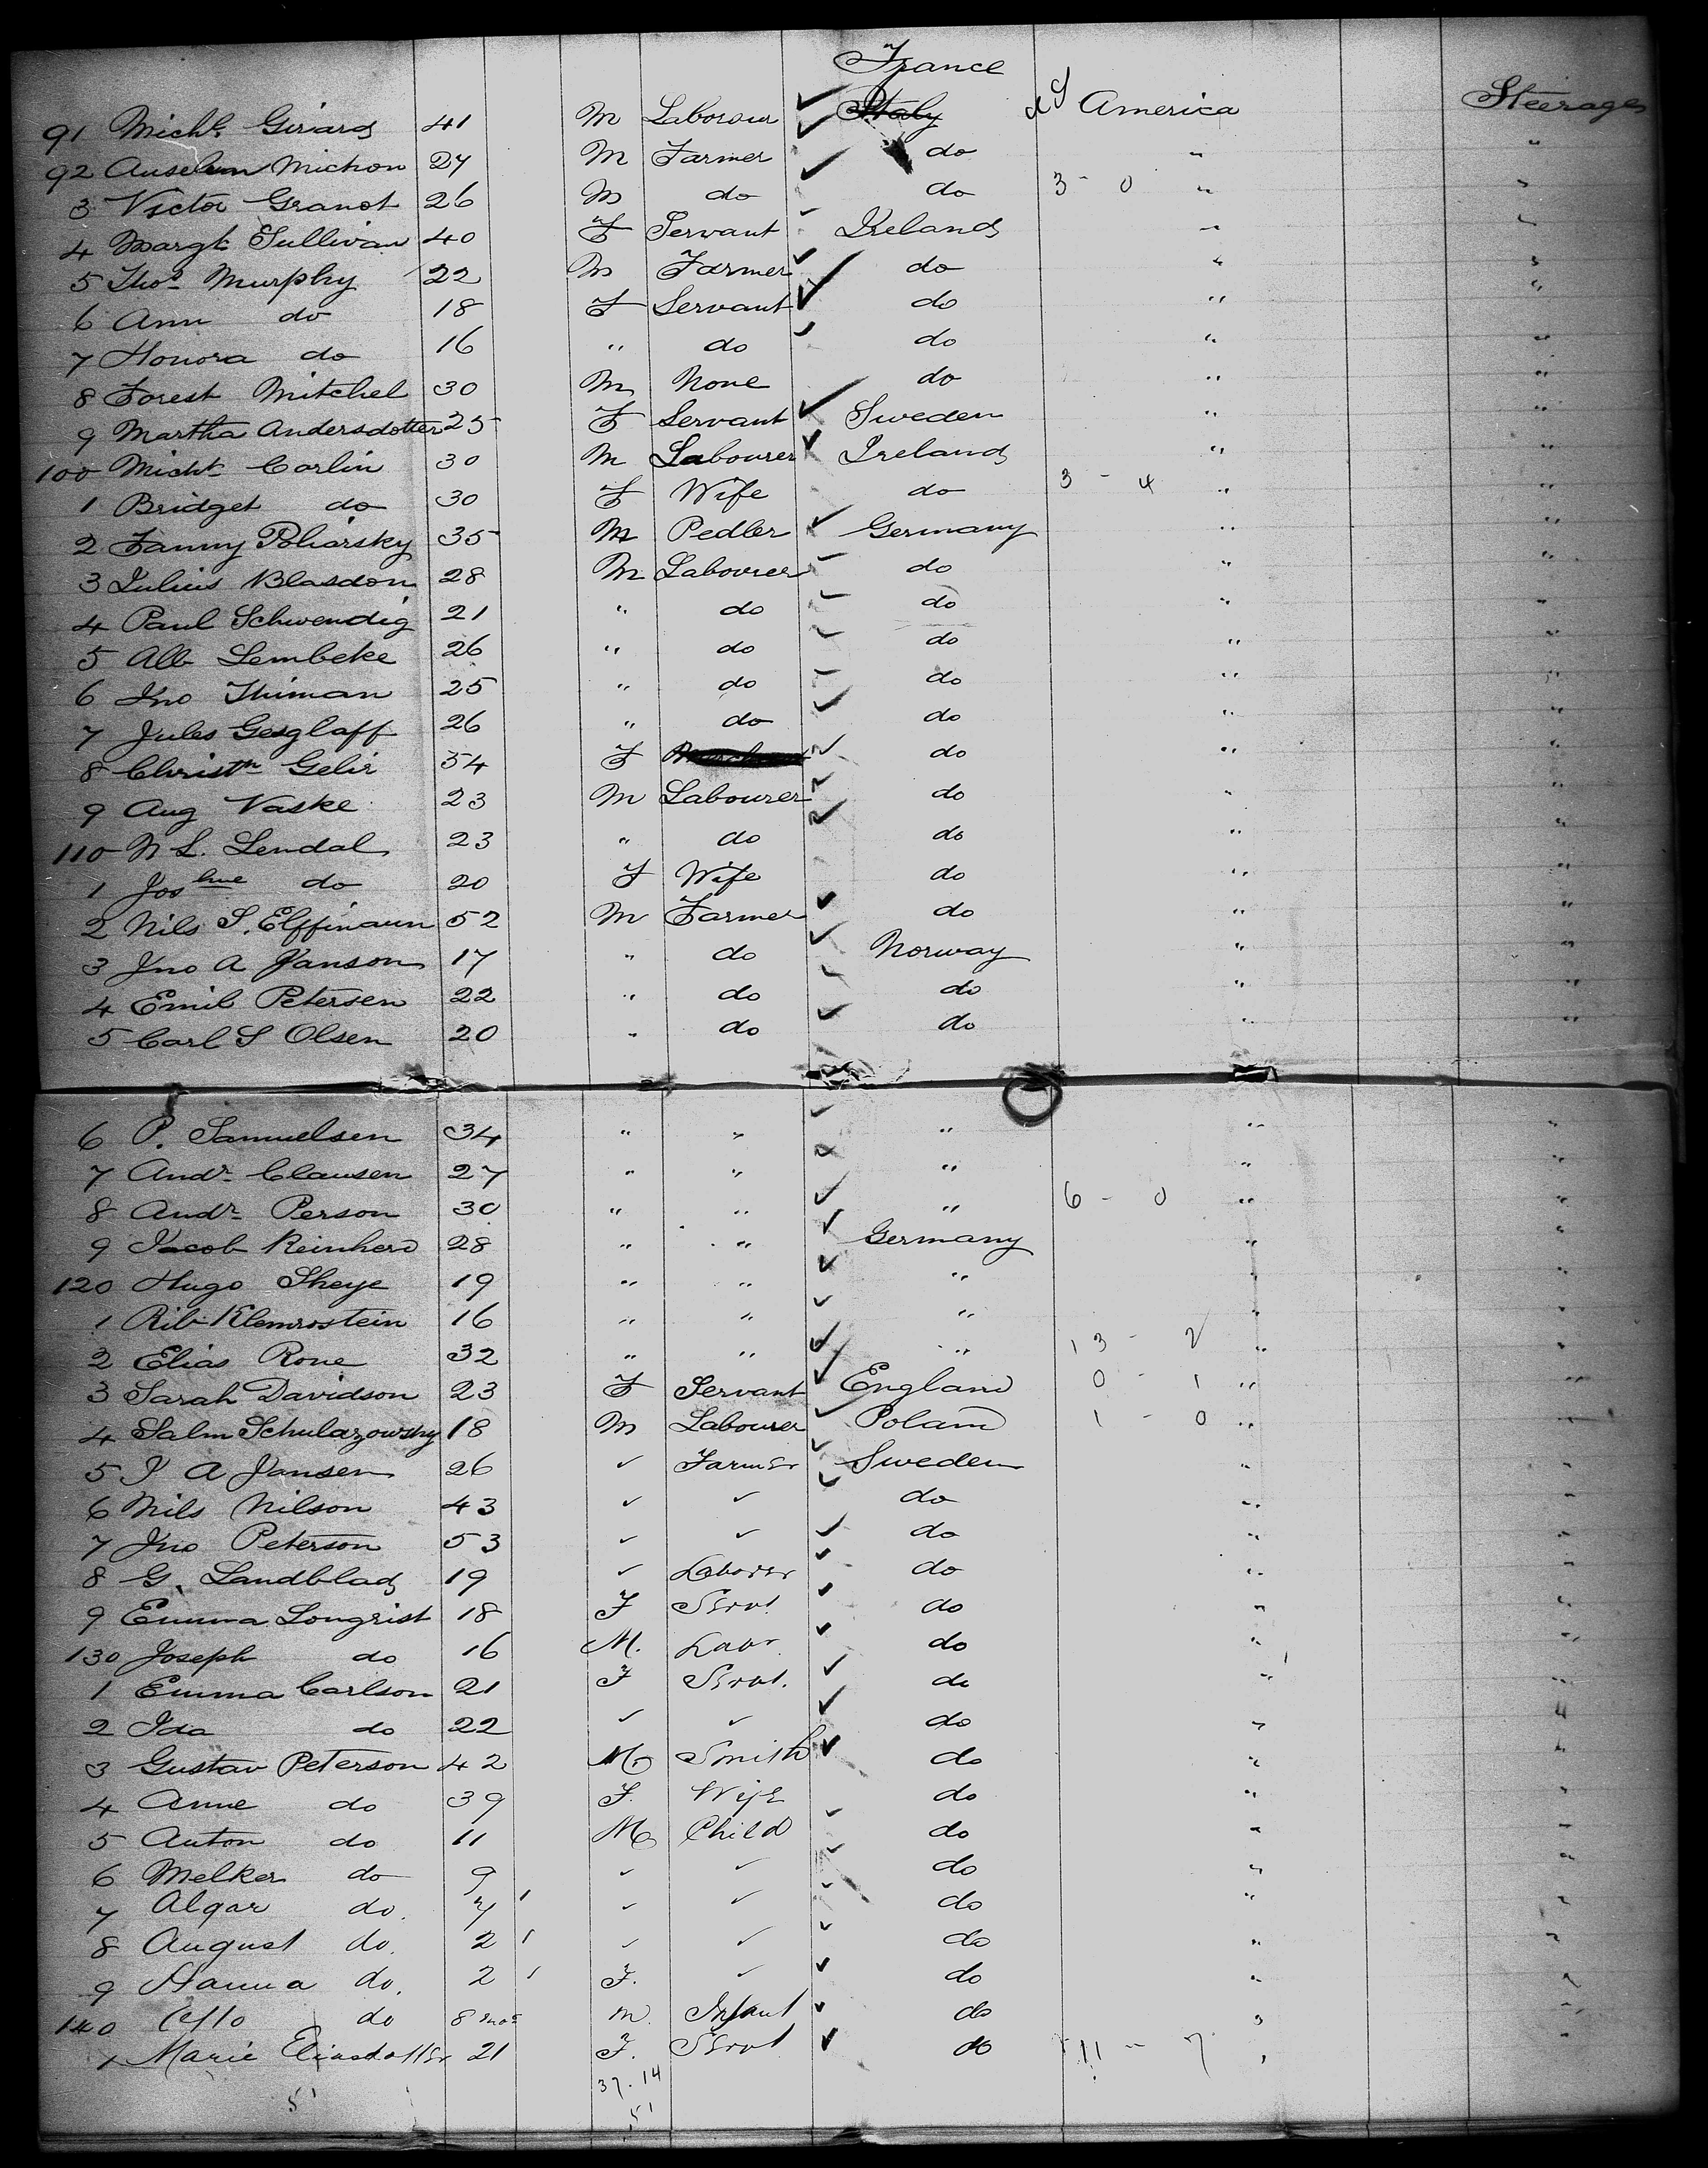 France
91 Michl. Girard 41 M Laborour Italy U S America Steerage
92 Anselm Michon 27 M Farmer do " "
3 Victor Granot 26 M do do 3 - 0 " "
4 Margt. Sullivan 40 F Servant Ireland " "
5 Thos. Murphy 22 M Farmer do " "
6 Ann do 18 F Servant do " "
7 Honora do 16 " do do " "
8 Forest Mitchel 30 M None do " "
9 Martha Andersdotter 25 F Servant Sweden " "
100 Michl. Carlin 30 M Labourer Ireland " "
1 Bridget do 30 F Wife do 3 - 4 " "
2 Fanny Poliarsky 35 M Pedler Germany " "
3 Julius Blasdon 28 M Labourer do " "
4 Paul Schwendig 21 " do do " "
5 Alb Lembeke 26 " do do " "
6 Jno Thiman 25 " do do " "
7 Jules Gesglaff 26 " do do " "
8 Christn Gelir 54 F do " "
9 Aug Vaske 23 M Labourer do " "
110 N L. Lendal 23 " do do " "
1 Joshne do 20 F Wife do " "
2 Nils S. Elffinaun 52 M Farmer do " "
3 Jno A Janson 17 " do Norway " "
4 Emil Petersen 22 " do do " "
5 Carl S Olsen 20 " do do " "
6 P. Samuelsen 34 " " " " "
7 Andr. Clausen 27 " " " " "
8 Andr. Person 30 " " " 6 - 0 " "
9 Jacob Reinherd 28 " " Germany " "
120 Hugo Sheye 19 " " " " "
1 Rib Klemrostein 16 " " " " "
2 Elias Rone 32 " " " 13 - 2 " "
3 Sarah Davidson 23 F Servant England 0 - 1 " "
4 Salm Schulazowsky 18 M Labourer Poland 1 - 0 " "
5 J A Jansen 26 " Farmer Sweden " "
6 Nils Nilson 43 " " do " "
7 Jno Peterson 53 " " do " "
8 G. Landblad 19 " Laborer do " "
9 Emma Longrist 18 F Servt. do " "
130 Joseph do 16 M. Labr do " "
1 Emma Carlson 21 F Servt. do " "
2 Ida do 22 " " do " "
3 Gustav Peterson 42 M Smith do " "
4 Anne do 39 F. Wife do " "
5 Anton do 11 M Child do " "
6 Melker do 9 " " do " "
7 Algar do. 7 " " do " "
8 August do. 2 " " do " "
9 Hanna do. 2 F. " do " "
140 Otto do 8 mos m. Infant do " "
1 Marie Eliasdotter 21 F. Servt do 11 - 7 " "
51 37-14
51